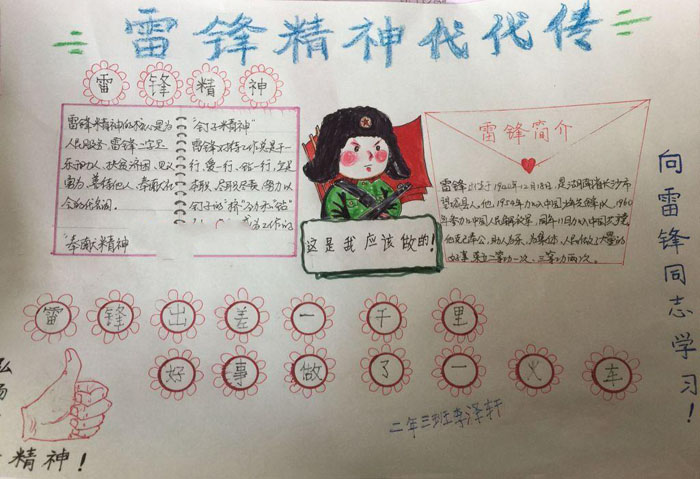 雷锋精神代代传
雷锋精神
雷锋精神的核心是为
人民服务,雷锋一生是
乐于助人,扶贫济困,见义
勇为,善待他人,奉献
会的代名词。
"奉献精神
"钉子精神"
雷锋对待工作总是干一
行,爱一行,钻一行,立足
本职,尽职尽责,努力以
钉子的"挤"劲和"钻"
工作的
这是我应该做的!
雷锋简介
雷锋出生于1940年12月18日,是湖南省长沙市
望城县人,他1954年加入中国少年先锋队,1960
年参加中国人民解放军,同年11月加入中国共产党
他克己奉公,助人为乐,为集体,人民做了大量的
好事,二等功一次,三等功两次。
向雷锋同志学习!
雷锋出差一千里
好事做了一火车
弘
扬
精神!
二年三班李泽轩